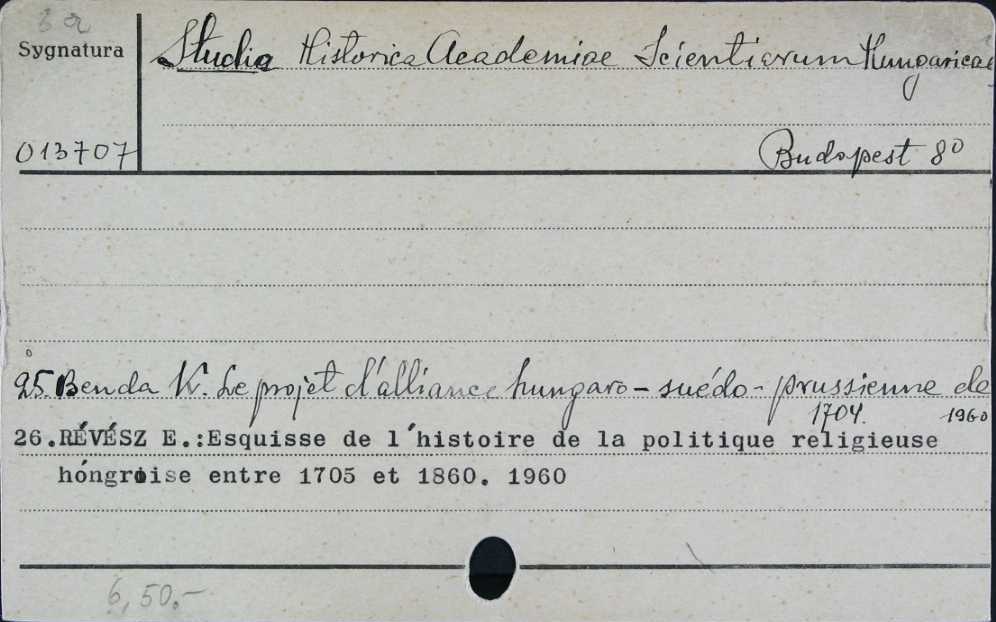 3a
Sygnatura
Studia Historica Academiae Scientiarum Hungaricae
013707
Budapest 8º
25. Benda K. Le projet d'alliance hungaro-suédo-prussienne de
1704. 1960
26.RÉVÉSZ E.:Esquisse de l'histoire de la politique religieuse
hóngroise entre 1705 et 1860. 1960
6,50.-